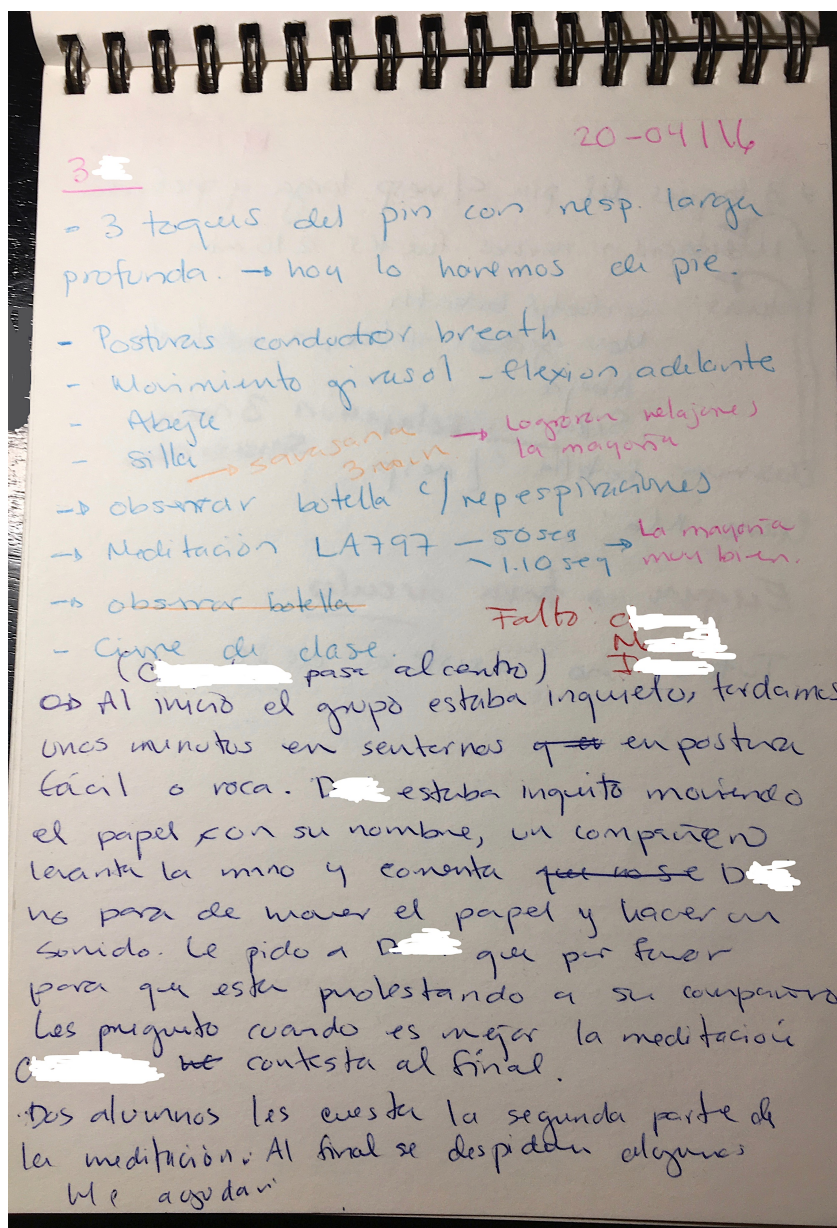 20-04/16
3
- 3 toques del pin con resp. larga
profunda. → hoy lo haremos de pie.
- Posturas conductior breath
- Movimiento girasol - flexion adelante
- Abeja
- Silla → savasana 3 min. → Lograron relajarse la mayoría
→ observar botella c/ rep espiraciones
→ Meditación LA797 - 50 seg - 1.10 seg → La mayoría muy bien.
→ observar botella
- Cierre de clase.
Falto: C
M
I
(C pasa al centro)
Al inicio el grupo estaba inquieto, tardamos
unos minutos en sentarnos en postura
fácil o roca. D estaba inquito moviendo
el papel con su nombre, un compañero
levanta la mano y comenta que no se D
no para de mover el papel y hacer un
sonido. Le pido a D que por favor
para que esta molestando a su compañero
Les pregunto cuando es mejor la meditación
C contesta al final.
Dos alumnos les cuesta la segunda parte de
la meditación. Al final se despiden algunos
Me ayudan